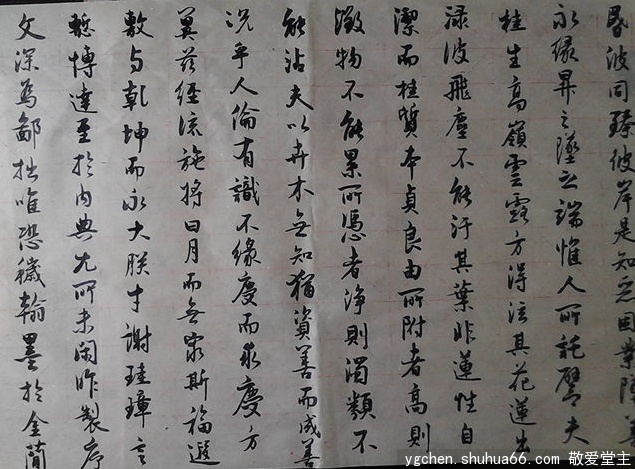 昏波同臻彼岸是知惡因業墜善
以緣昇々墜之端惟人所託譬夫
桂生高嶺雲露方得泫其花蓮出
淥波飛塵不能汙其葉非蓮性自
潔而桂質本貞良由所附者高則
微物不能累所憑者淨則濁類不
能沾夫以卉木無知猶資善而成善
况乎人倫有識不緣慶而求慶方
冀茲經流施將日月而無窮斯福遐
敷与乾坤而永大朕才謝珪璋言
慙博達至於内典尤所未閑昨製序
文深為鄙拙唯恐穢翰墨於金簡
ygchen.shuhua66.com 敬爱堂主